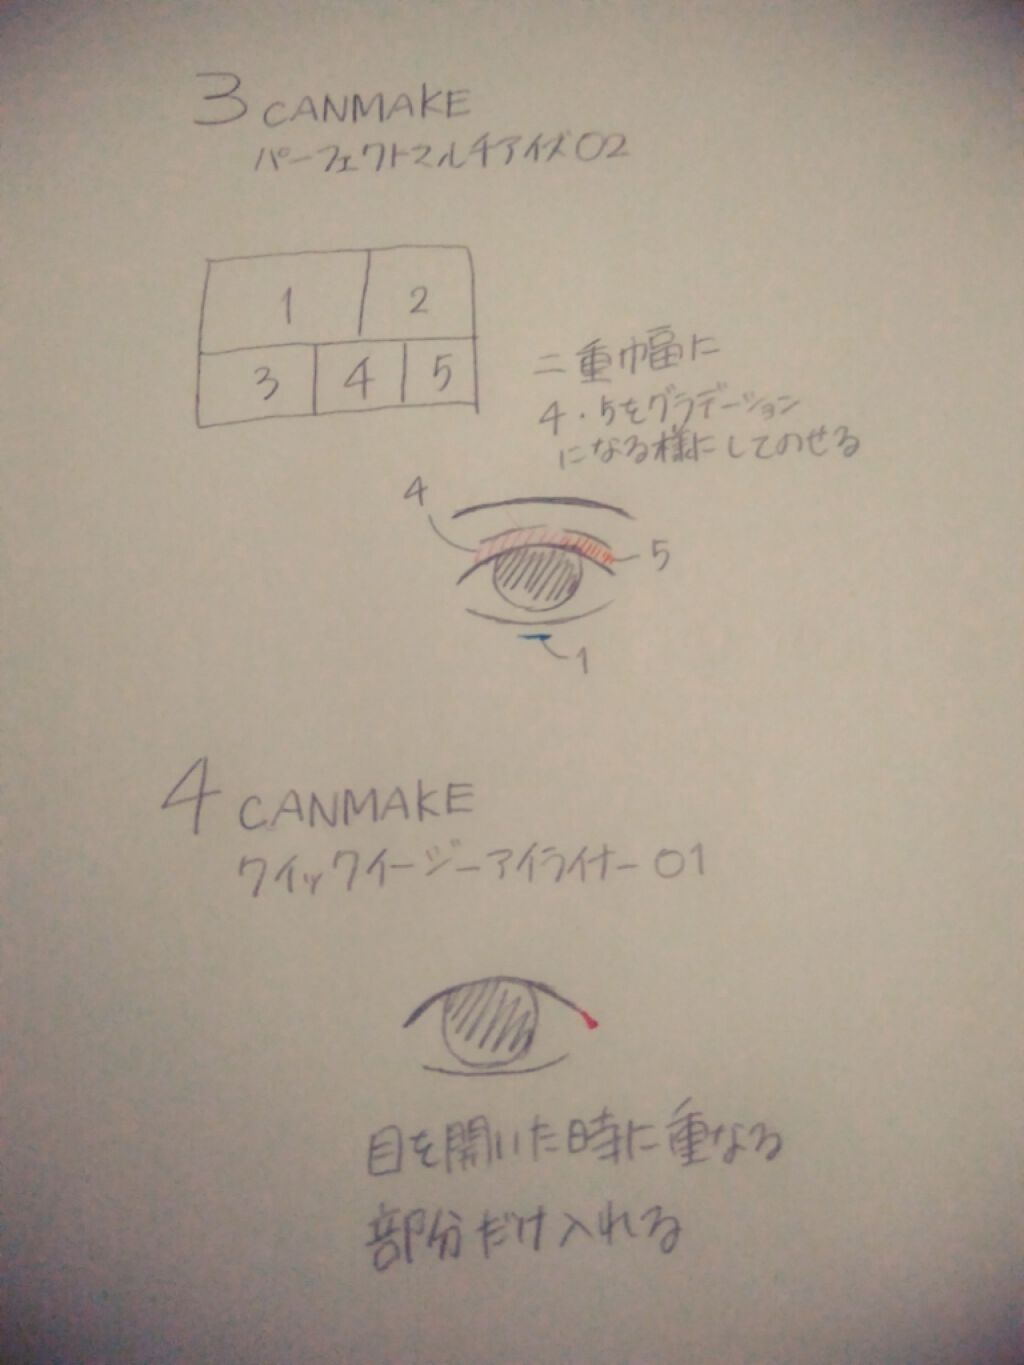 3 CANMAKE
パーフェクトマルチアイズ02
1 2
3 4 5
二重巾畐に
4・5をグラデーション
になる様にしてのせる
4
5
1
4 CANMAKE
クイックイージーアイライナー01
目を開いた時に重なる
部分だけ入れる